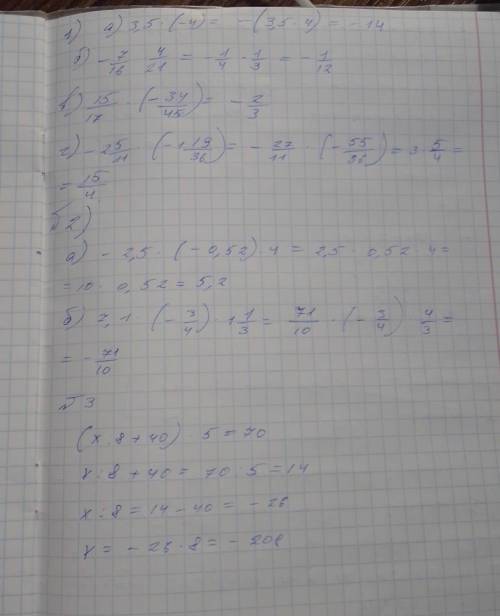 1) а) 3,5 · (-4) = -(3,5 · 4) = -14
б) -7/16 · 4/21 = -1/4 · 1/3 = -1/12
в) 15/17 · (-34/45) = -2/3
г) -2 5/11 · (-1 19/36) = -27/11 · (-55/36) = 3 · 5/4 =
= 15/4
№2)
а) -2,5 · (-0,52) · 4 = 2,5 · 0,52 · 4 =
= 10 · 0,52 = 5,2
б) 7,1 · (-3/4) · 1 1/3 = 71/10 · (-3/4) · 4/3 =
= -71/10
№3
(x : 8 + 40) · 5 = 70
x : 8 + 40 = 70 : 5 = 14
x : 8 = 14 - 40 = -26
x = -26 · 8 = -208